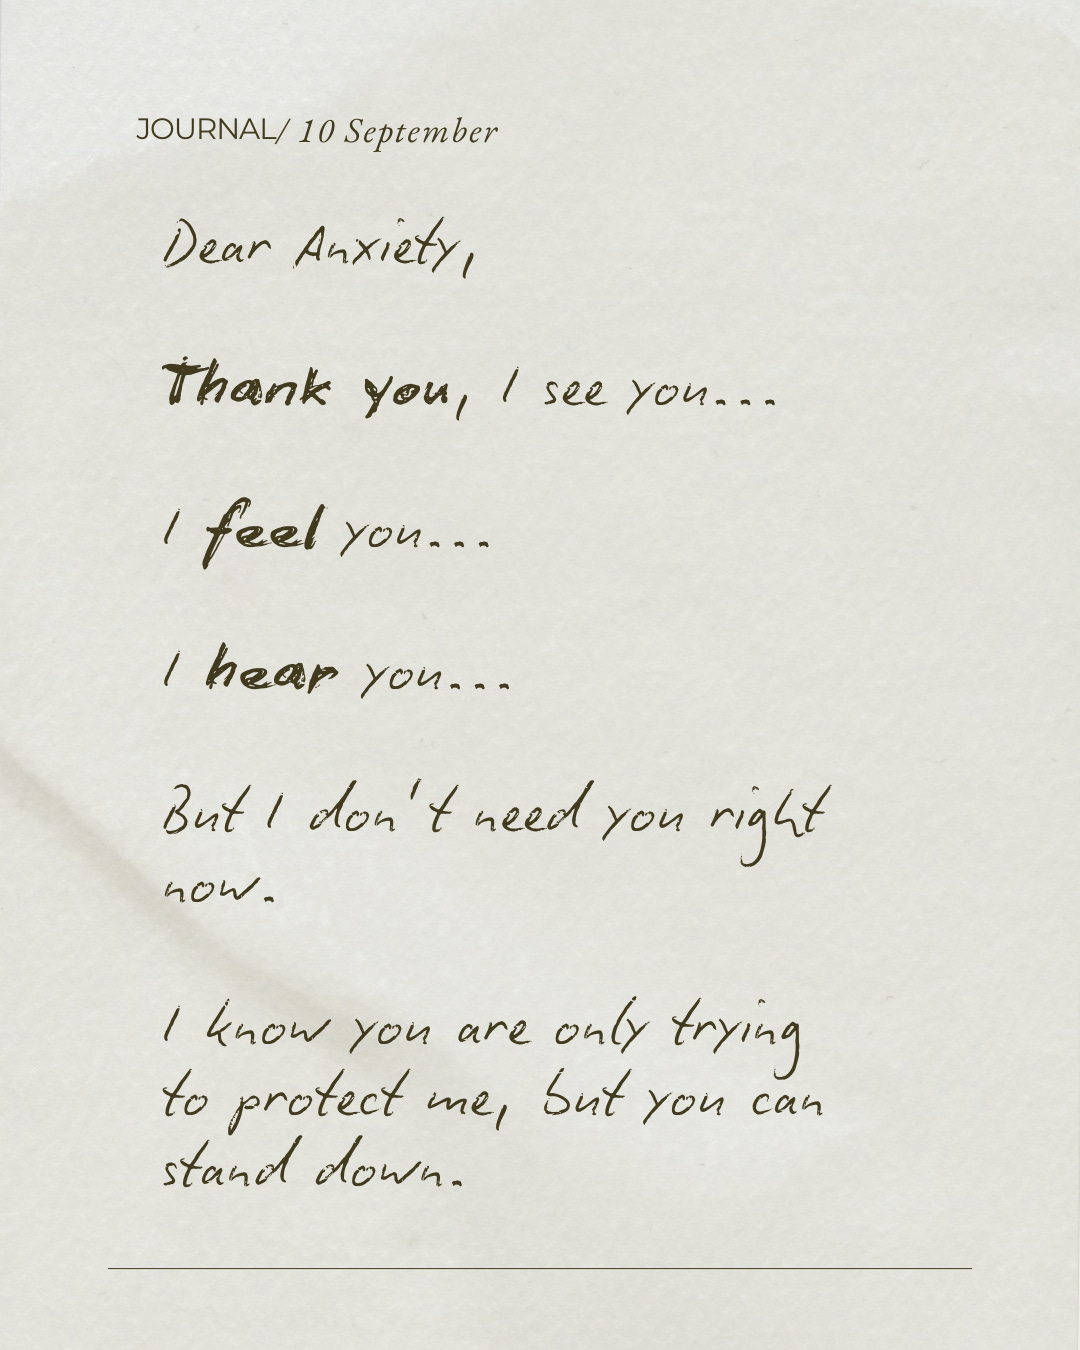 JOURNAL/ 10 September
Dear Anxiety,
Thank you, I see you...
I feel you...
I hear you...
But I don't need you right
now.
I know you are only trying
to protect me, but you can
stand down.